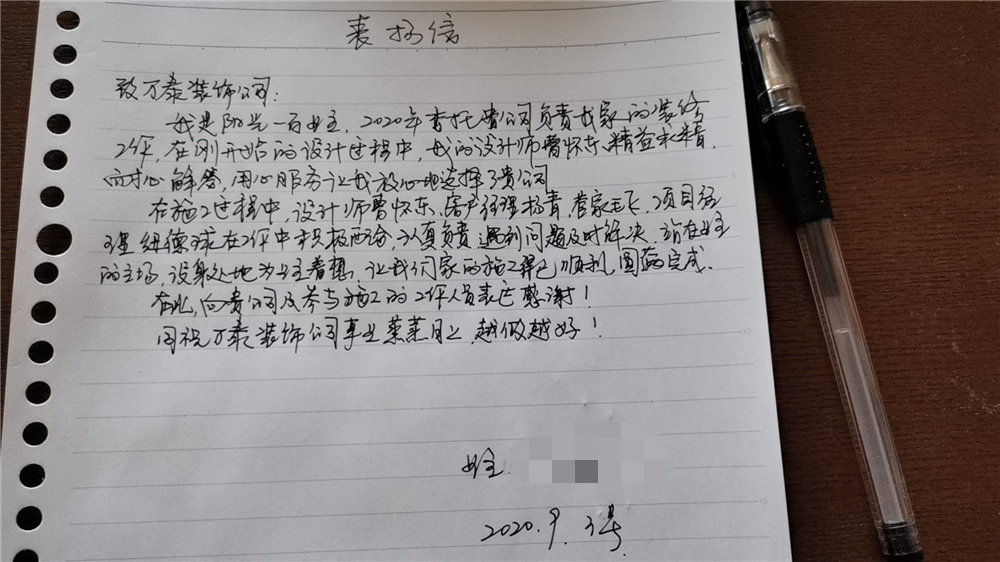 表扬信
致万泰装饰公司:
我是阳光一百业主, 2020年委托贵公司负责我家的装修
工作, 在刚开始的设计过程中, 我的设计师曹怀东、精益求精,
耐心解答, 用心服务让我放心地选择了贵公司
在施工过程中, 设计师曹怀东、客户经理杨青, 管家毛飞, 项目经
理纽德球在工作中积极配合, 认真负责 遇到问题及时解决 站在业主
的主场, 设身处地为业主着想. 让我们家的施工得已顺利, 圆满完成.
在此, 向贵公司及参与施工的工作人员表达感谢!
同祝万泰装饰公司事业蒸蒸日上, 越做越好!
业主:
2020.9.3号